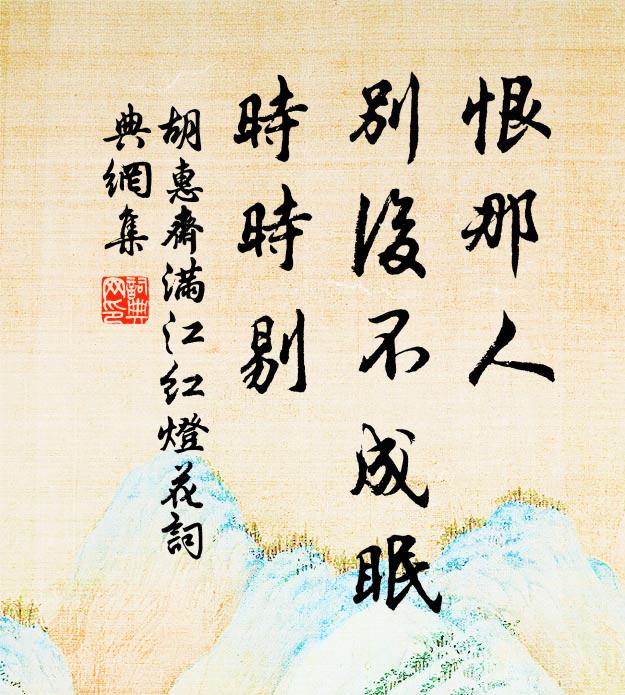 恨那人
別後不成眠
時時剔
胡惠齋滿江紅燈花詞
典網集
詞典網印